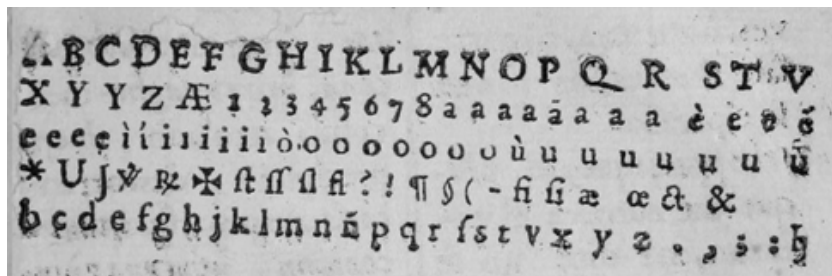 A B C D E F G H I K L M N O P Q R S T V
X Y Y Z Æ 1 2 3 4 5 6 7 8 a a a a ā a a a è e e é
e e e ę ì í i ı i i i ı ò o o o o o o o o ù u u u u u u ū
* U J ℣ ℞ ✠ ſt ſſ ſl ſi ? ! ¶ § ( - fi ſi æ œ ct &
b ç d e f g h j k l m n ñ p q r ſ s t v x y z . , ; : h